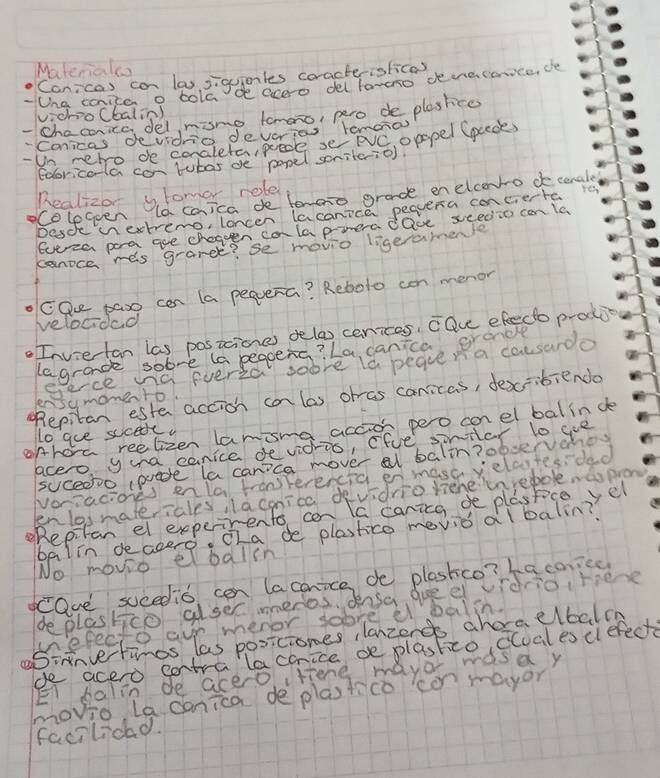 Materiales
• Canicas con las siguientes caracteristicas
- Una canica o bola de acero del tamaño de una canica, de
vidrio (balin)
- Una canica del mismo tamaño, pero de plastico
- Canicas de vidrio de varios tamaños
- Un metro de canaleta, puede ser PVC o papel (puedes
fabricarla con tubos de papel sanitario).
Realizar y tomar nota
• Coloquen la canica de tamaño grande en el centro de canaleta
Desde un extremo, lancen la canica pequeña con cierta
fuerza para que choquen con la primera ¿Que sucedio con la
canica más grande? Se movio ligeramente
• ¿Que paso con la pequeña? Reboto con menor
velocidad
• Inviertan las posiciones de las canicas, ¿Que efecto produ
la grande sobre la pequeña? La canica grande
ejerce una fuerza sobre la pequeña causando
en su momento.
• Repitan esta acción con las otras canicas, describiendo
lo que sucede
• Ahora realizen la misma acción pero con el balin de
acero y una canica de vidrio, ¿fue similar lo que
sucedio, puede la canica mover al balin? observamos
variaciones en la transferencia en masa y
en los materiales, la canica de vidrio tiene un rebote mas
• Repitan el experimento con la canica de plástico y el
balin de acero. ¿La de plastico movió al balin?
No movio el balin
• ¿Qué sucedió con la canica de plastico? La canica
de plastico al ser menos densa que el vidrio, tiene
un efecto aun menor sobre el balin.
• Si invertimos las posiciones, lanzando ahora el balin
de acero contra la canica de plastico, ¿cual es el efecto
El balin de acero, tiene mayor masa y
movio la canica de plastico con mayor
facilidad.